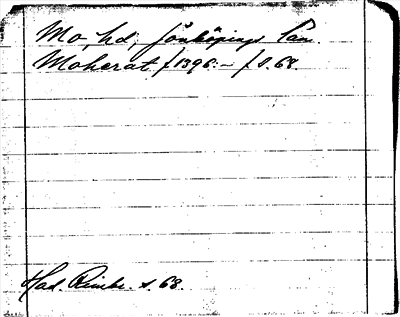 Mo, hd, Jönköpings län.
Moherat /1396.-/ s. 68.
Had. Rimbe. s. 68.